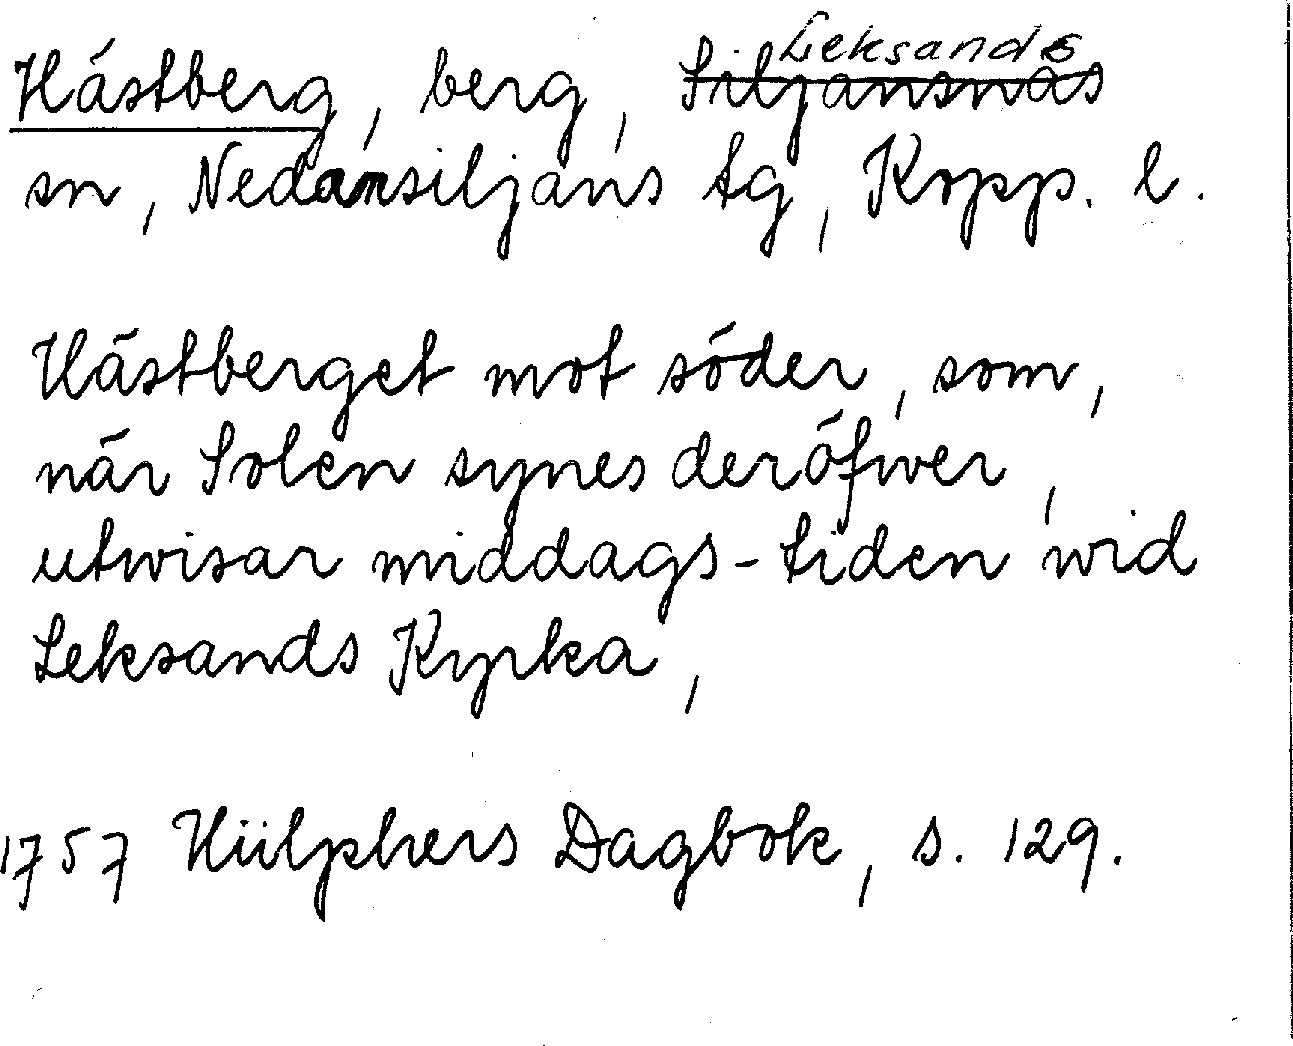 Leksands
Hästberg, berg, Siljansnäs
sn, Nedansiljans tg, Kopp. l.
Hästberget mot söder, som,
när Solen synes deröfwer,
utwisar middags-tiden wid
Leksands Kyrka,
1757 Hülphers Dagbok, s. 129.